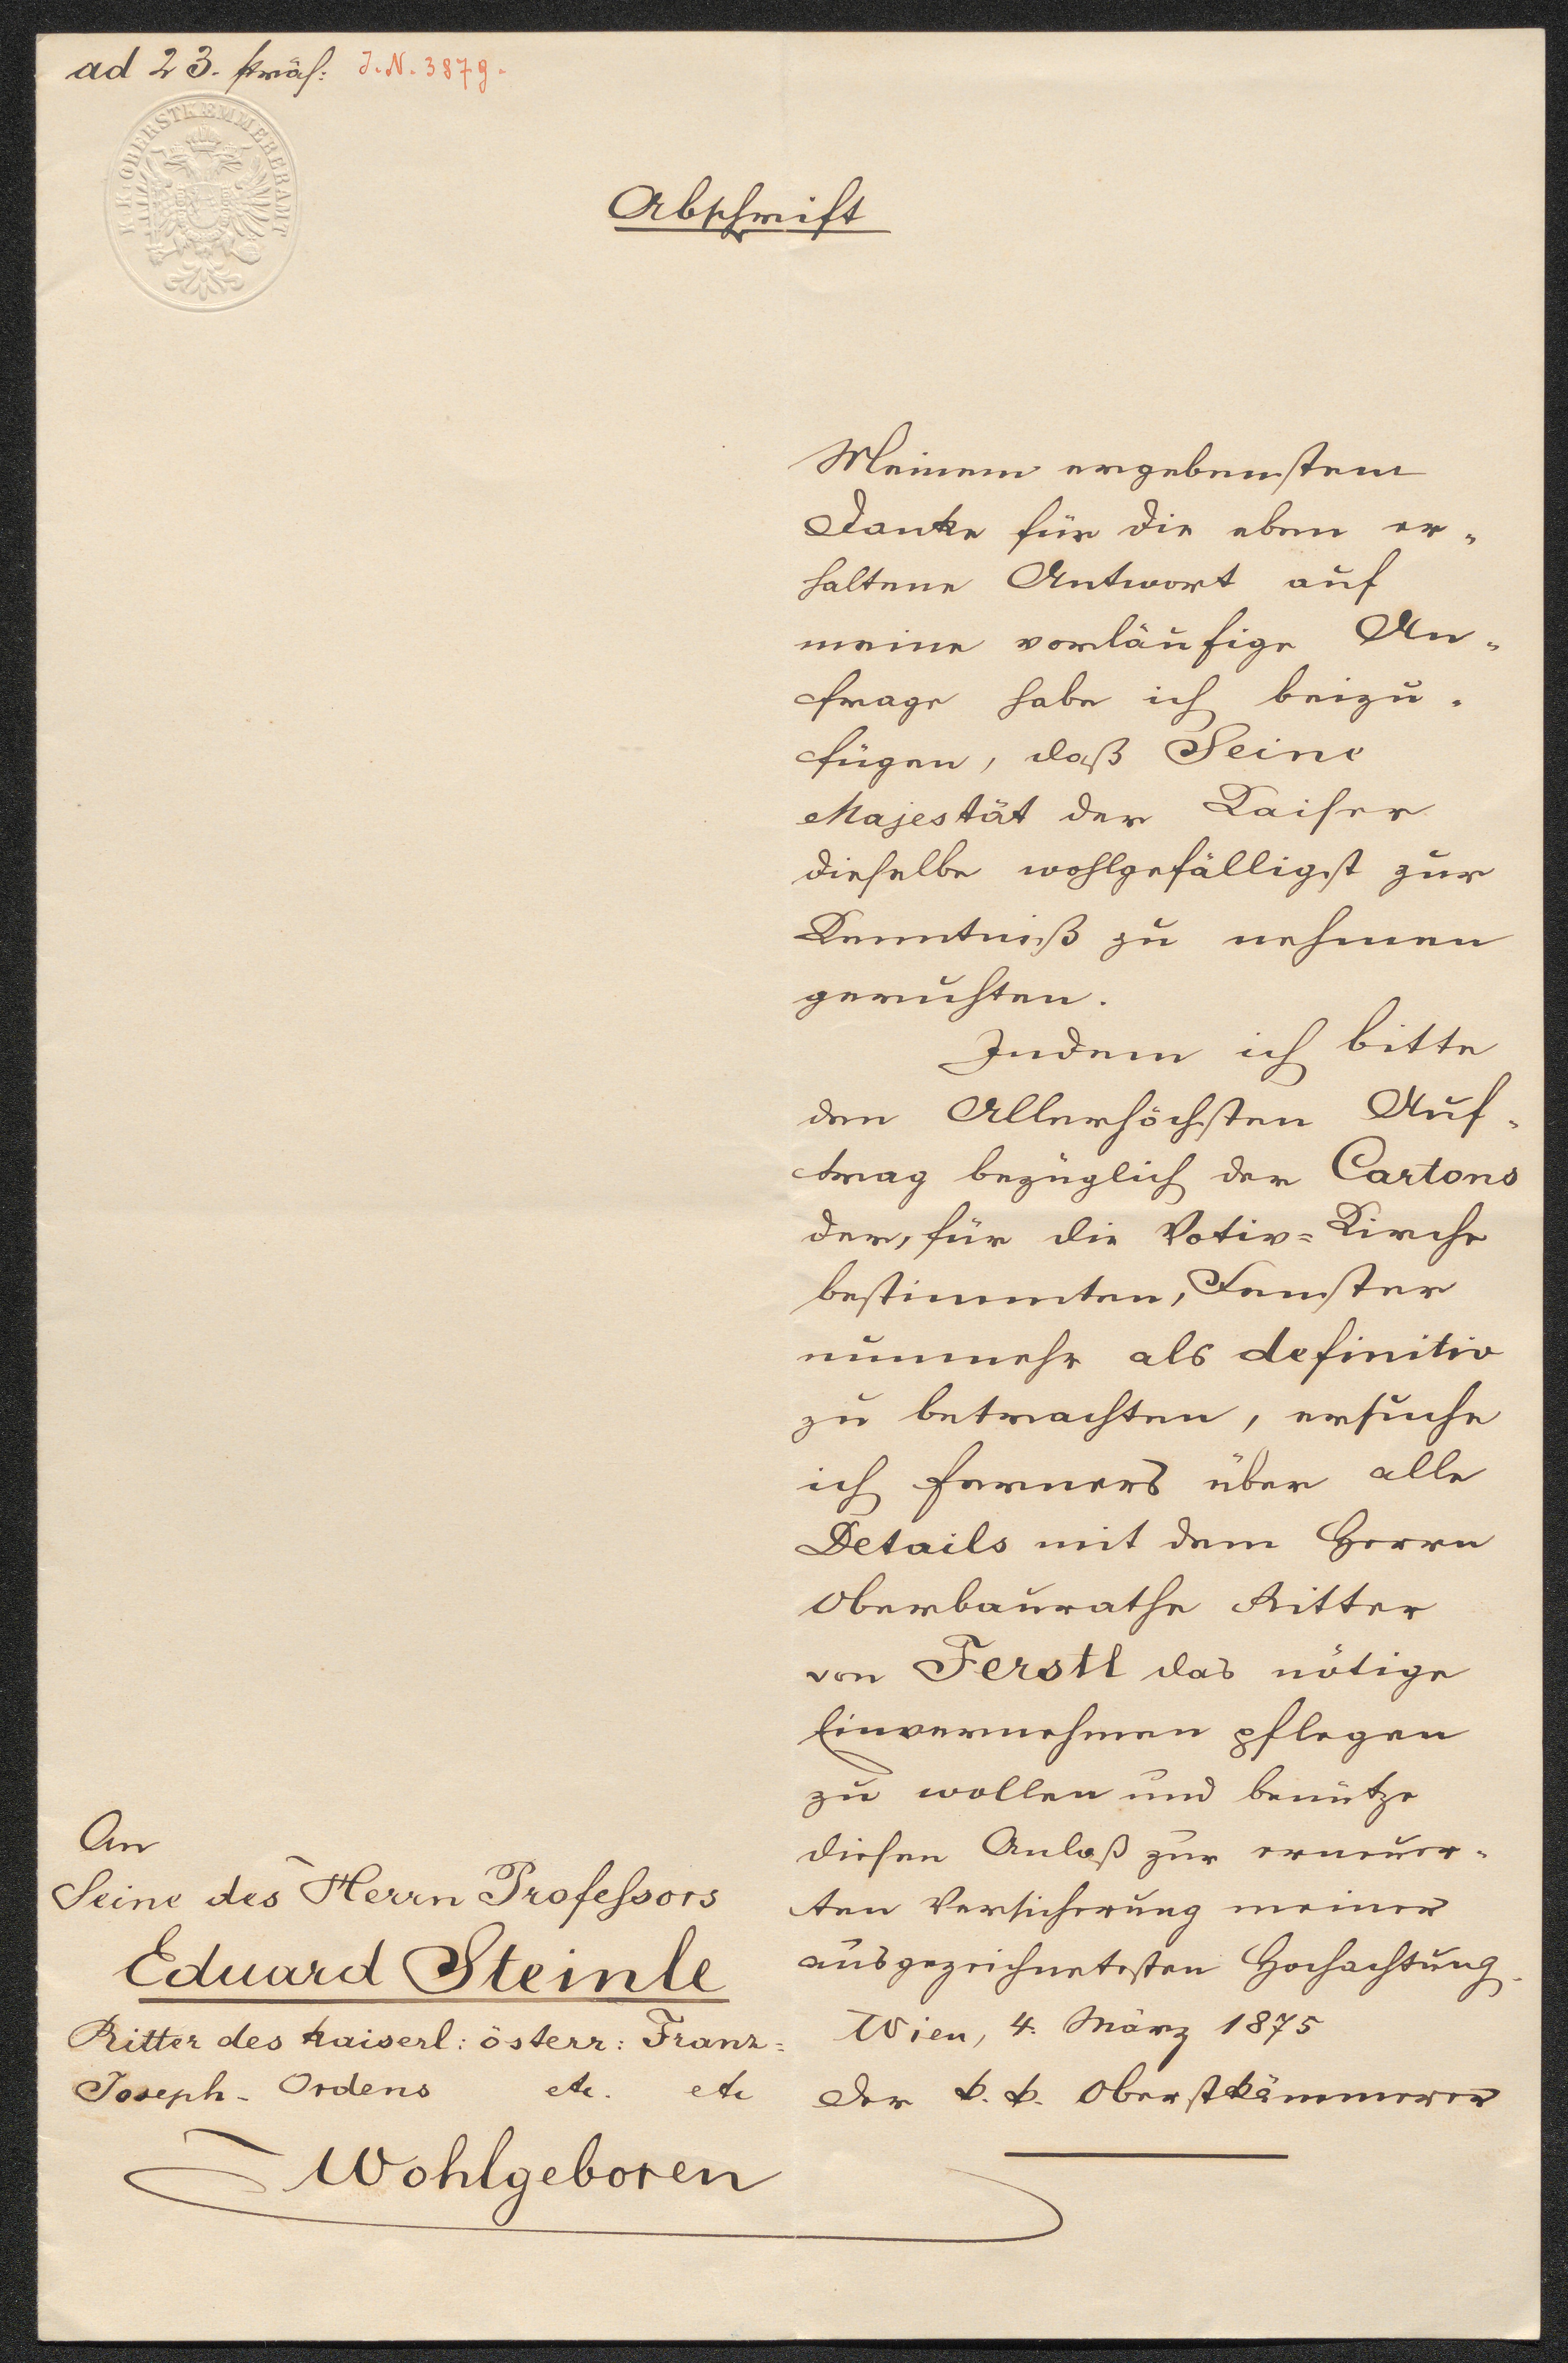 ad 23. präs: J.N. 3879.
K. K. OBERSTKÆMMERERAMT
Abschrift
Meinem ergebenstem
Danke für die eben er-
haltene Antwort auf
meine vorläufige An-
frage habe ich beizu-
fügen, daß Seine
Majestät der Kaiser
dieselbe wohlgefälligst zur
Kenntniß zu nehmen
geruhten.
Indem ich bitte
den Allerhöchsten Auf-
trag bezüglich der Cartons
der, für die Votiv=Kirche
bestimmten, Fenster
nunmehr als definitiv
zu betrachten, ersuche
ich ferners über alle
Details mit dem Herrn
Oberbaurathe Ritter
von Ferstl das nötige
Einvernehmen pflegen
zu wollen und benütze
diesen Anlaß zur erneuer-
ten Versicherung meiner
ausgezeichnetesten Hochachtung.
Wien, 4. März 1875
Der k. k. Oberstkämmerer
An
Seine des Herrn Professors
Eduard Steinle
Ritter des kaiserl: österr: Franz=
Joseph- Ordens etc. etc
Wohlgeboren